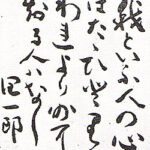 我といふ人の心
はたゝひと里
われより外に
知る人ハなし
潤一郎